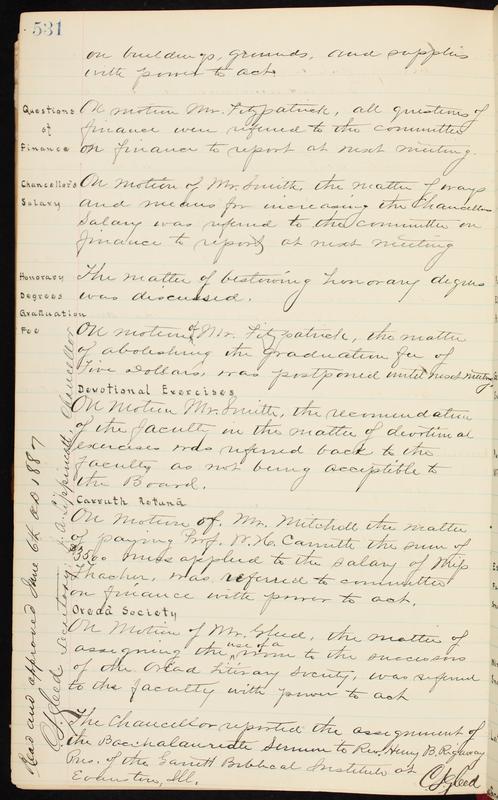 531
on buildings, grounds, and supplies
with power to act
Questions of Finance
On motion Mr. Fitzpatrick, all questions of
finance were referred to the committee
on finance to report at next meeting.
Chancellor's Salary
On motion of Mr. Smith, the matter of ways
and means for increasing the Chancellors
Salary was referred to the committee on
finance to report at next meeting
Honorary Degrees
The matter of bestowing honorary degrees
was discussed.
Graduation Fee
On motion of Mr. Fitzpatrick, the matter
of abolishing the graduation fee of
Five Dollars, was postponed until next meeting.
Devotional Exercises
On Motion Mr. Smith, the recomendation
of the faculty in the matter of devotional
exercises was referred back to the
faculty as not being acceptible to
the Board.
Carruth Refund
On Motion of Mr. Mitchell the matter
of paying Prof. W. H. Carruth the sum of
missapplied to the salary of Miss
Thacher, was referred to committee
on finance with power to act.
Oread Society
On Motion of Mr. Gleed, the matter of
assigning the use of a room to the successors
of the Oread Literary Society, was referred
to the faculty with power to act
The Chancellor reported the assignment of
the Baccalaureate Sermon to Rev. Henry B. Ridgaway
Pres. of the Garrett Biblical Institute at
Evanston, Ill.
C S Gleed
Read and approved June 6th AD 1887
C S Gleed Secretary J. A. Lippincott, Chancellor